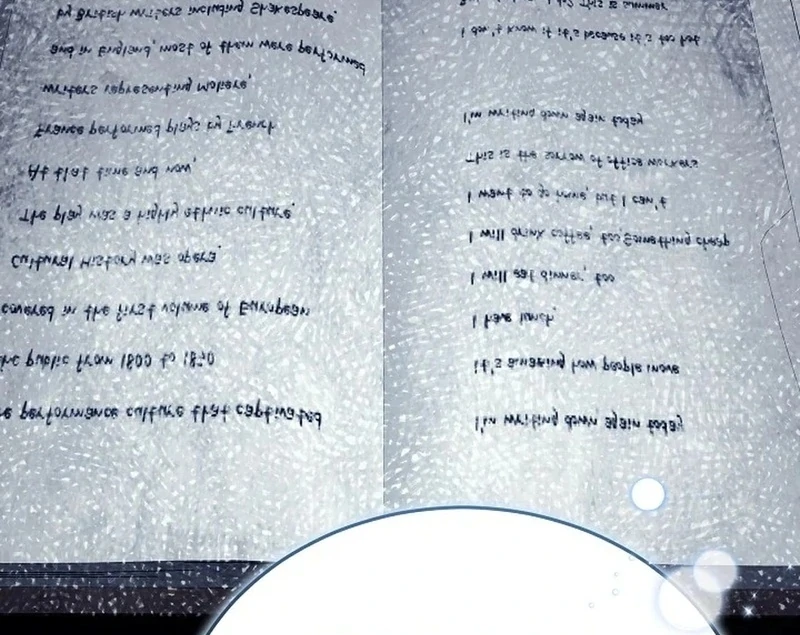 performance culture that captivated
public from 1800 to 1830
covered in the first volume of European
Cultural History was opera.
The play was a highly ethnic culture.
At that time and now,
France performed plays by French
writers representing Moliere,
and in England, most of them were performed
by British writers including Shakespeare.
I'm writing down again today
It's amazing how people move
I have lunch,
I will eat dinner, too
I will drink coffee, too Something cheap
I want to go home, but I can't
This is the sorrow of office workers
I'm writing down again today
I don't know if it's because it's too hot
This is summer